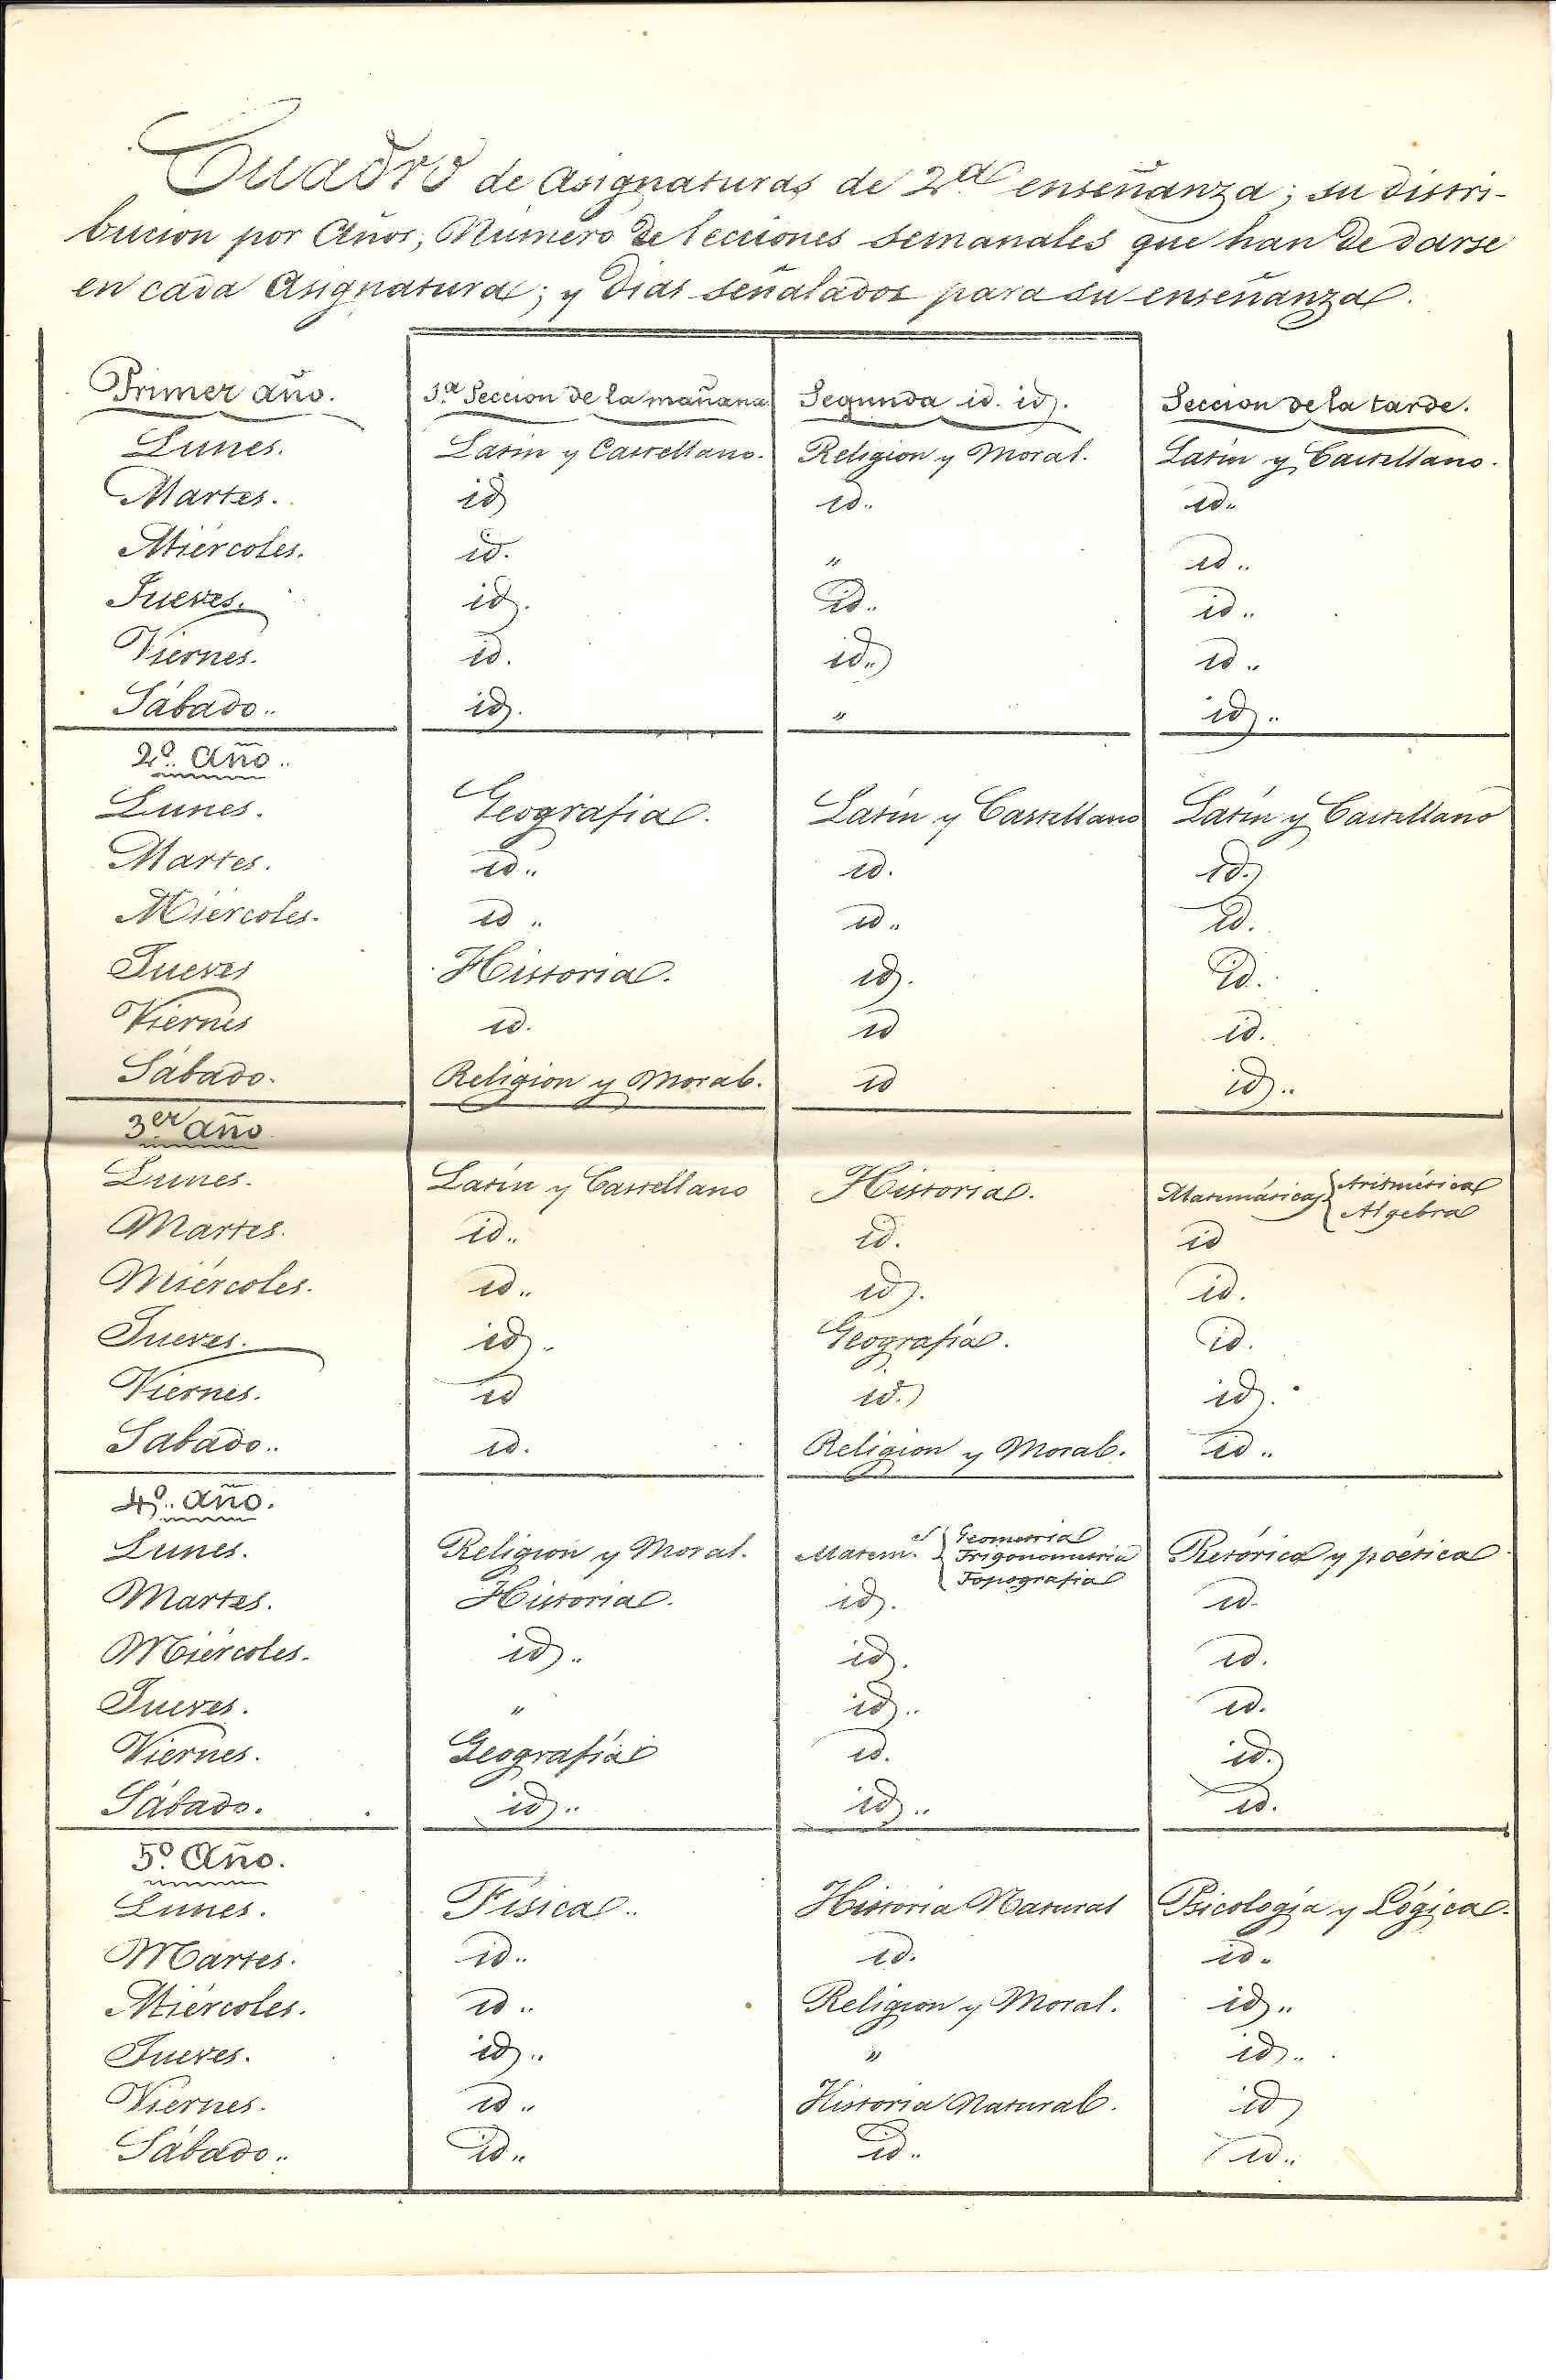 Cuadro de Asignaturas de 2.ª enseñanza; su distri-
bucion por Años; Número de lecciones semanales que han de darse
en cada Asignatura; y dias señalados para su enseñanza.
Primer año. 1.ª Seccion de la mañana. Segunda id. id. Seccion de la tarde.
Lunes. Latin y Castellano. Religion y Moral. Latin y Castellano.
Martes. id id.. id..
Miércoles. id. " id..
Jueves. id. id.. id..
Viernes. id. id.. id..
Sábado.. id. " id..
2.º Año..
Lunes. Geografia. Latin y Castellano Latin y Castellano
Martes. id.. id. id.
Miércoles. id.. id.. id.
Jueves Historia. id. id.
Viernes id. id id.
Sábado. Religion y Moral. id id..
3.er año
Lunes. Latin y Castellano Historia. Matemáticas { Aritmética
Algebra
Martes. id.. id. id
Miércoles. id.. id. id.
Jueves. id.. Geografía. id.
Viernes. id id. id.
Sabado.. id. Religion y Moral. id..
4.º año.
Lunes. Religion y Moral. Matem.s { Geometria
Trigonometria
Topografia Retórica y poética
Martes. Historia. id. id.
Miércoles. id.. id. id.
Jueves. " id.. id.
Viernes. Geografía id. id.
Sábado. id.. id.. id.
5.º Año.
Lunes. Física.. Historia Natural Psicología y Lógica.
Martes. id.. id. id..
Miércoles. id.. Religion y Moral. id..
Jueves. id.. " id..
Viernes. id.. Historia Natural. id
Sábado.. id.. id.. id..